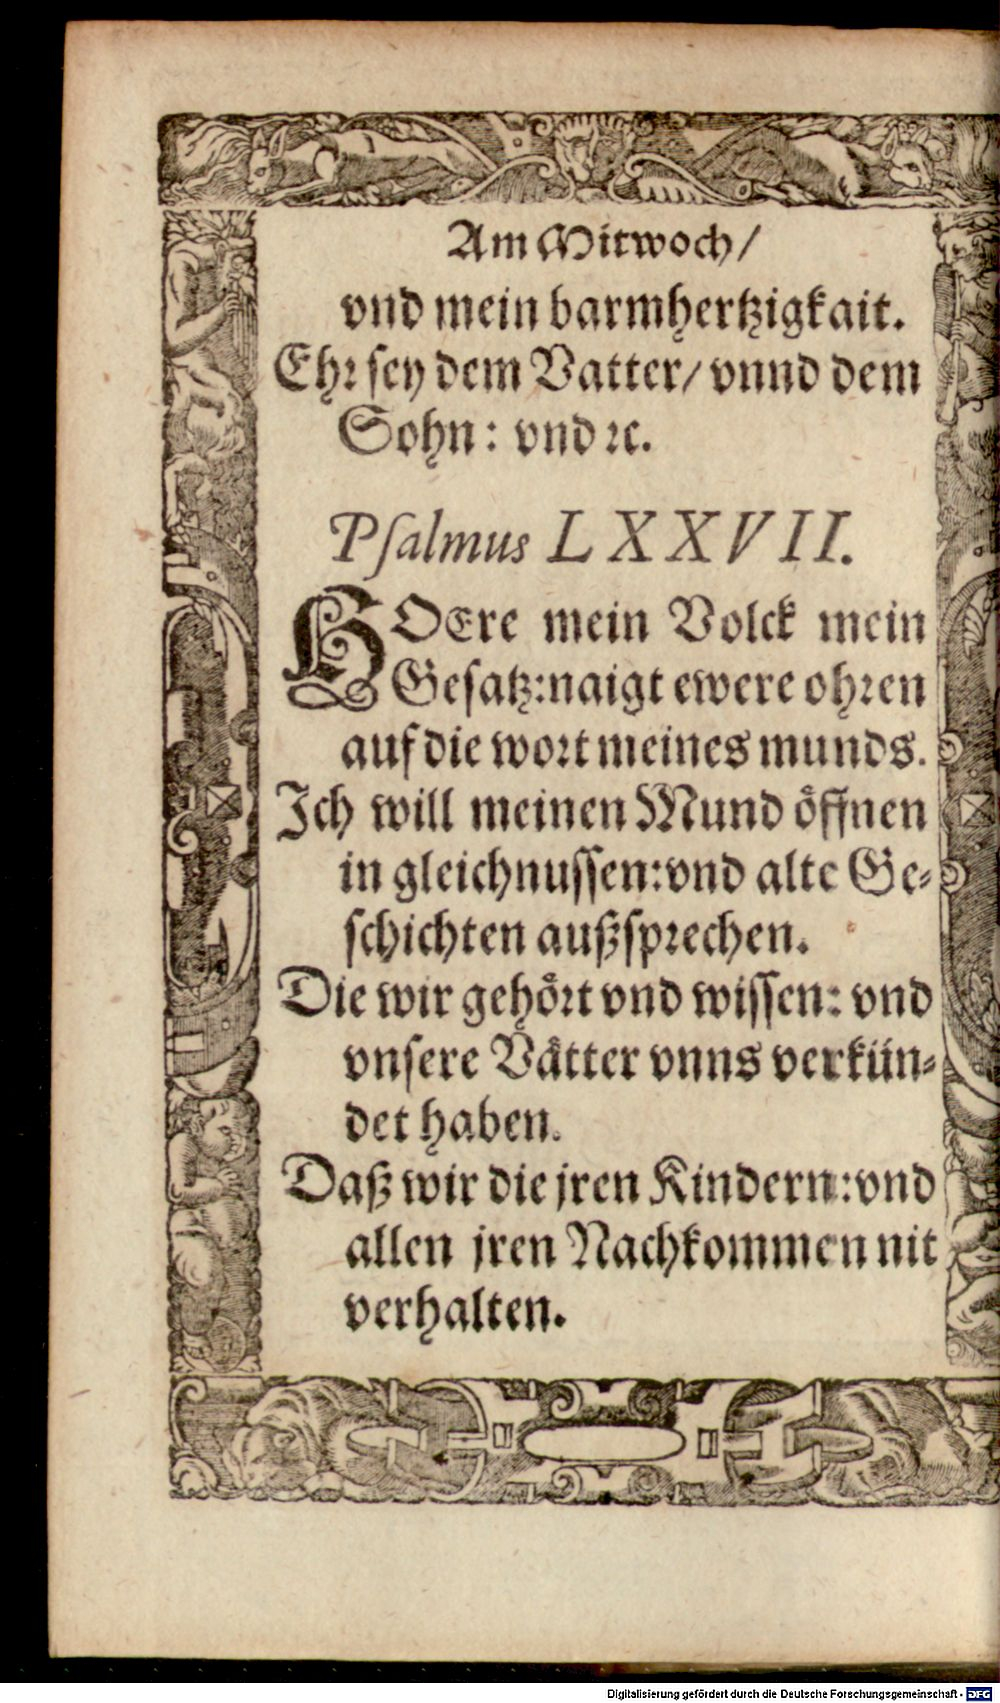 Am Mitwoch/
vnd mein barmhertzigkait.
Ehr sey dem Vatter/ vnnd dem
Sohn: vnd ꝛc.
Psalmus LXXVII.
HOEre mein Volck mein
Gesatz: naigt ewere ohren
auf die wort meines munds.
Ich will meinen Mund öffnen
in gleichnussen: vnd alte Ge-
schichten außsprechen.
Die wir gehört vnd wissen: vnd
vnsere Vätter vnns verkün-
det haben.
Daß wir die jren Kindern: vnd
allen jren Nachkommen nit
verhalten.
Digitalisierung gefördert durch die Deutsche Forschungsgemeinschaft - DFG